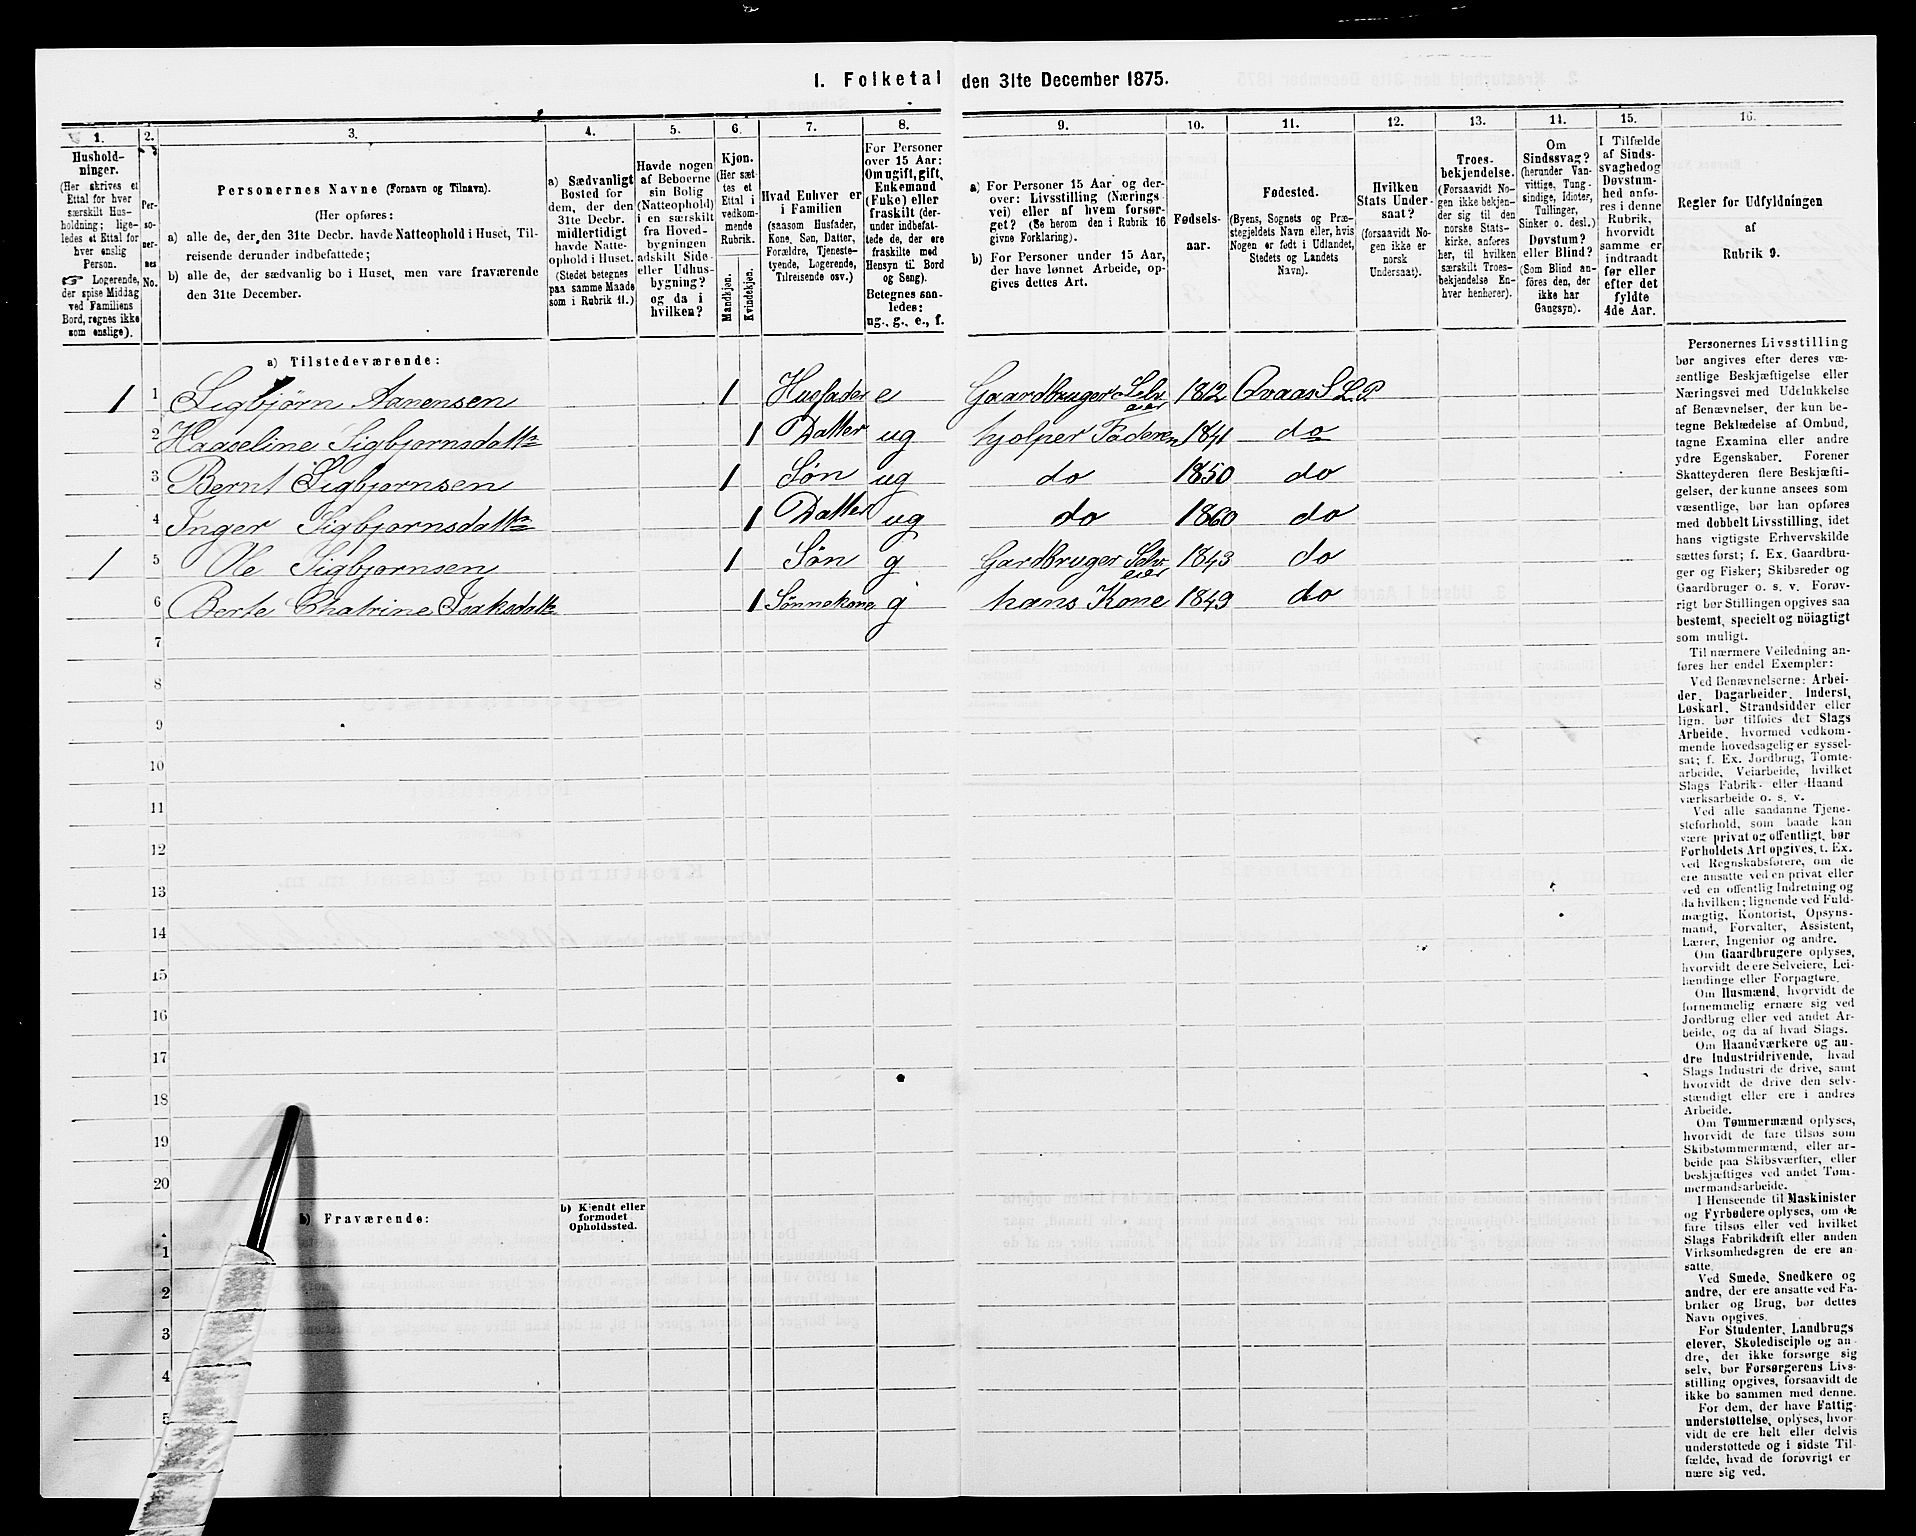 I. Folketal den 31te December 1875.
1.
2.
3.
4.
5.
6.
7.
8.
9.
10.
11.
12.
13.
14.
15.
16.
Hushold-
ninger.
(Her skrives et
Ettal for hver
særskilt Hus-
holdning; lige-
ledes et Ettal for
hver enslig
Person.
☞ Logerende,
der spise Middag
ved Familiens
Bord, regnes ikke
som enslige).
Per-
so-
ner-
nes
No.
Personernes Navne (Fornavn og Tilnavn).
(Her opføres:
a) alle de, der den 31te Decbr. havde Natteophold i Huset, Til-
reisende derunder indbefattede;
b) alle de, der sædvanlig bo i Huset, men vare fraværende
den 31te December.
a) Sædvanligt
Bosted for
dem, der den
31te Decbr.
midlertidigt
havde Natte-
ophold i Huset.
(Stedet betegnes
paa samme Maade
som i Rubrik 11.)
Havde nogen
af Beboerne
sin Bolig
(Natteophold)
i en særskilt
fra Hoved-
bygningen
adskilt Side-
eller Udhus-
bygning?
og da i
hvilken?
Kjøn.
(Her sæt-
tes et
Ettal i
vedkom-
mende
Rubrik.
Mandkjøn.
Kvindekjøn.
Hvad Enhver er
i Familien
(saasom Husfader,
Kone, Søn, Datter,
Forældre, Tjeneste-
tyende, Logerende,
Tilreisende osv.)
For Personer
over 15 Aar:
Om ugift, gift,
Enkemand
(Fuke) eller
fraskilt (der-
under indbefat-
tede de, der ere
fraskilte med
Hensyn til Bord
og Seng).
Betegnes saa-
ledes:
ug., g., e., f.
a) For Personer 15 Aar og der-
over: Livsstilling (Nærings-
vei) eller af hvem forsør-
get? (Se herom den i Rubrik 16
givne Forklaring).
b) For Personer under 15 Aar,
der have lønnet Arbeide, op-
gives dettes Art.
Fødsels-
aar.
Fødested.
(Byens, Sognets og Præ-
stegjeldets Navn eller, hvis
Nogen er født i Udlandet,
Stedets og Landets
Navn).
Hvilken
Stats Under-
saat?
(forsaavidt No-
gen ikke er
norsk
Undersaat).
Troes-
bekjendelse.
(Forsaavidt No-
gen ikke bekjen-
der sig til den
norske Stats-
kirke, anføres
her, til hvilken
særskilt Troes-
bekjendelse En-
hver henhører).
Om
Sindssvag?
(herunder Van-
vittige, Tung-
sindige, Idioter,
Tullinger,
Sinker o. desl.)
Døvstum?
eller Blind?
(Som Blind an-
føres den, der
ikke har
Gangsyn).
I Tilfælde
af Sinds-
svaghed og
Døvstum-
hed anfø-
res i denne
Rubrik,
hvorvidt
samme er
indtraadt
før eller
efter det
fyldte
4de Aar.
Regler for Udfyldningen
af
Rubrik 9.
a) Tilstedeværende:
1 1 Sigbjörn Aanensen 1 Husfader e Gaardbruger Selveier 1812 Qvaas S L P
2 Haaseline Sigbjornsdattr 1 Datter ug hjolper Faderen 1841 do
3 Bernt Sigbjornsen 1 Søn ug do 1850 do
4 Inger Sigbjornsdattr 1 Datter ug do 1860 do
1 5 Ole Sigbjornsen 1 Søn g Gardbruger Selveier 1843 do
6 Berte Chatrine Isaksdattr 1 Sønnekone g hans Kone 1849 do
7
8
9
10
11
12
13
14
15
16
17
18
19
20
b) Fraværende:
b) Kjendt eller
formodet
Opholdssted.
1
2
3
4
5
Personernes Livsstilling
bør angives efter deres væ-
sentlige Beskjæftigelse eller
Næringsvei med Udelukkelse
af Benævnelser, der kun be-
tegne Beklædelse af Ombud,
tagne Examina eller andre
ydre Egenskaber. Forener
Skatteyderen flere Beskjæfti-
gelser, der kunne ansees som
væsentlige, bør han opføres
med dobbelt Livsstilling, idet
hans vigtigste Erhvervskilde
sættes først; f. Ex. Gaardbru-
ger og Fisker; Skibsreder og
Gaardbruger o. s. v. Forøv-
rigt bør Stillingen opgives saa
bestemt, specielt og nöiagtigt
som muligt.
Til nærmere Veiledning an-
føres her endel Exempler:
Ved Benævnelserne: Arbei-
der, Dagarbeider, Inderst,
Løskarl, Strandsidder eller
lign. bør tilføies det Slags
Arbeide, hvormed vedkom-
mende hovedsagelig er syssel-
sat; f. Ex. Jordbrug, Tomte-
arbeide, Veiarbeide, hvilket
Slags Fabrik- eller Haand
værksarbeide o. s. v.
Ved alle saadanne Tjene-
steforhold, som baade kan
være privat og offentligt, bør
Forholdets Art opgives, t. Ex.
ved Regnskabsførere, om de
ere ansatte ved en privat eller
ved en offentlig Indretning og
da hvilken; lignende ved Fuld-
mægtig, Kontorist, Opsyns-
mand, Forvalter, Assistent,
Lærer, Ingeniør og andre.
Om Gaardbrugere oplyses,
hvorvidt de ere Selveiere, Lei-
lændinge eller Forpagtere.
Om Husmænd, hvorvidt de
fornemmelig ernære sig ved
Jordbrug eller ved andet Ar-
beide, og da af hvad Slags.
Om Haandværkere og an-
dre Industridrivende, hvad
Slags Industri de drive, samt
hvorvidt de drive den selv-
stændigt eller ere i andres
Arbeide.
Om Tømmermænd oplyses,
hvorvidt de fare tilsøs som
Skibstømmermænd, eller ar-
beide paa Skibsværfter, eller
beskjæftiges ved andet Tøm-
mermandsarbeide.
I Henseende til Maskinister
og Fyrbødere oplyses, om de
fare tilsøs eller ved hvilket
Slags Fabrikdrift eller anden
Virksomhedsgren de ere an-
satte.
Ved Smede, Snedkere og
andre, der ere ansatte ved Fa-
briker og Brug, bør dettes
Navn opgives.
For Studenter, Landbrugs
elever, Skoledisciple og an-
dre, der ikke forsørge sig
selv, bør Forsørgerens Livs-
stilling opgives, forsaavidt de
ikke bo sammen med denne.
For dem, der have Fattig-
understøttelse, oplyses, hvor-
vidt de ere helt eller delvis
understøttede og i sidste Til-
fælde, hvad de forøvrigt er
nære sig ved.